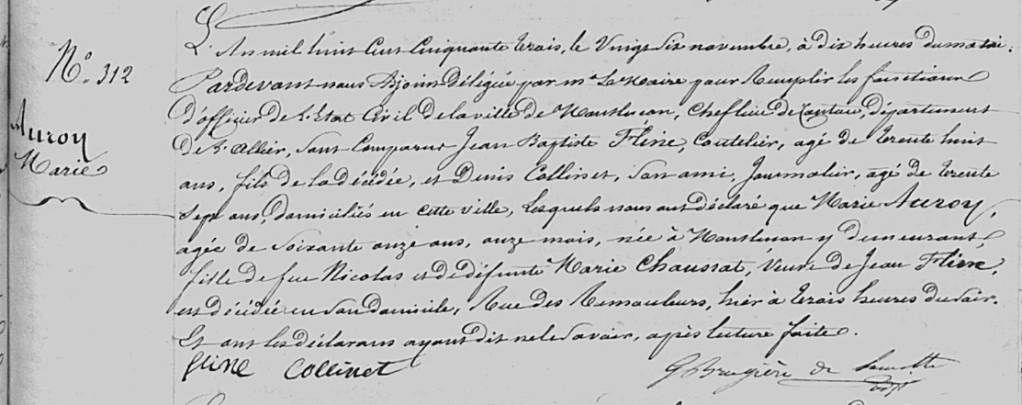 N.o 312
Auroy
Marie
L'An mil huit Cent Cinquante trois, le Vingt Six novembre, à dix heures du matin.
Pardevant nous Adjoint Délégué par mr. Le Maire pour Remplir les fonctions
D'officier de L'Etat Civil de la ville de Montluçon, Cheflieu de Canton, département
de L'Allier, Sont Comparus Jean Baptiste Flène, Coutelier, agé de trente huit
ans, fils de la décédée, et Denis Collinet, Son ami, Journalier, agé de trente
Sept ans, domiciliés en cette ville, lesquels nous ont déclaré que Marie Auroy,
agée de Soixante onze ans, onze mois, née à Montlucon y demeurant,
fille de feu Nicolas et de défunte Marie Chaussat, Veuve de Jean Flène,
est décédée en Son domicile, Rue des Remouleurs, hier à trois heures du Soir.
Et ont les déclarans ayant dit ne le Savoir, après lecture faite.
fline Collinet
Bruyière de Lamotte
adjt